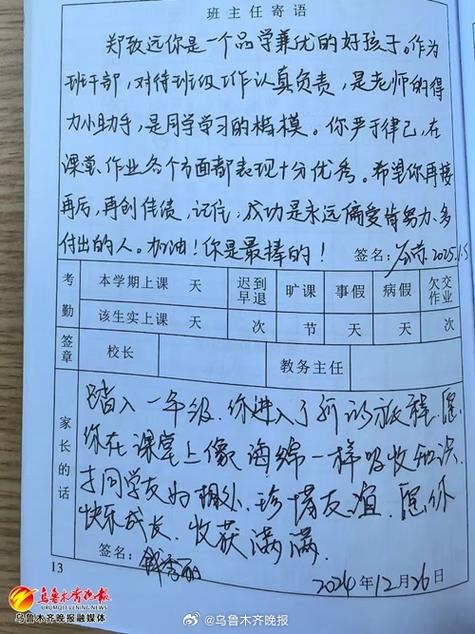 班主任寄语
郑致远你是一个品学兼优的好孩子。作为
班干部,对待班级工作认真负责,是老师的得
力小助手,是同学学习的楷模。你严于律己,在
课堂、作业各个方面都表现十分优秀。希望你再接
再厉,再创佳绩,记住,成功是永远偏爱肯努力、多
付出的人。加油!你是最棒的!
签名: 2025.1.5
考勤 本学期上课 天 迟到早退 旷课 事假 病假 欠交作业
该生实上课 天 次 节 天 天 次
签章 校长 教务主任
家长的话
踏入一年级,你进入了新的旅程,愿
你在课堂上像海绵一样吸收知识,
与同学友好相处,珍惜友谊,愿你
快乐成长,收获满满。
签名:
2024年12月26日
13
乌鲁木齐晚报
URUMQI EVENING NEWS
乌鲁木齐晚报融媒体
@乌鲁木齐晚报